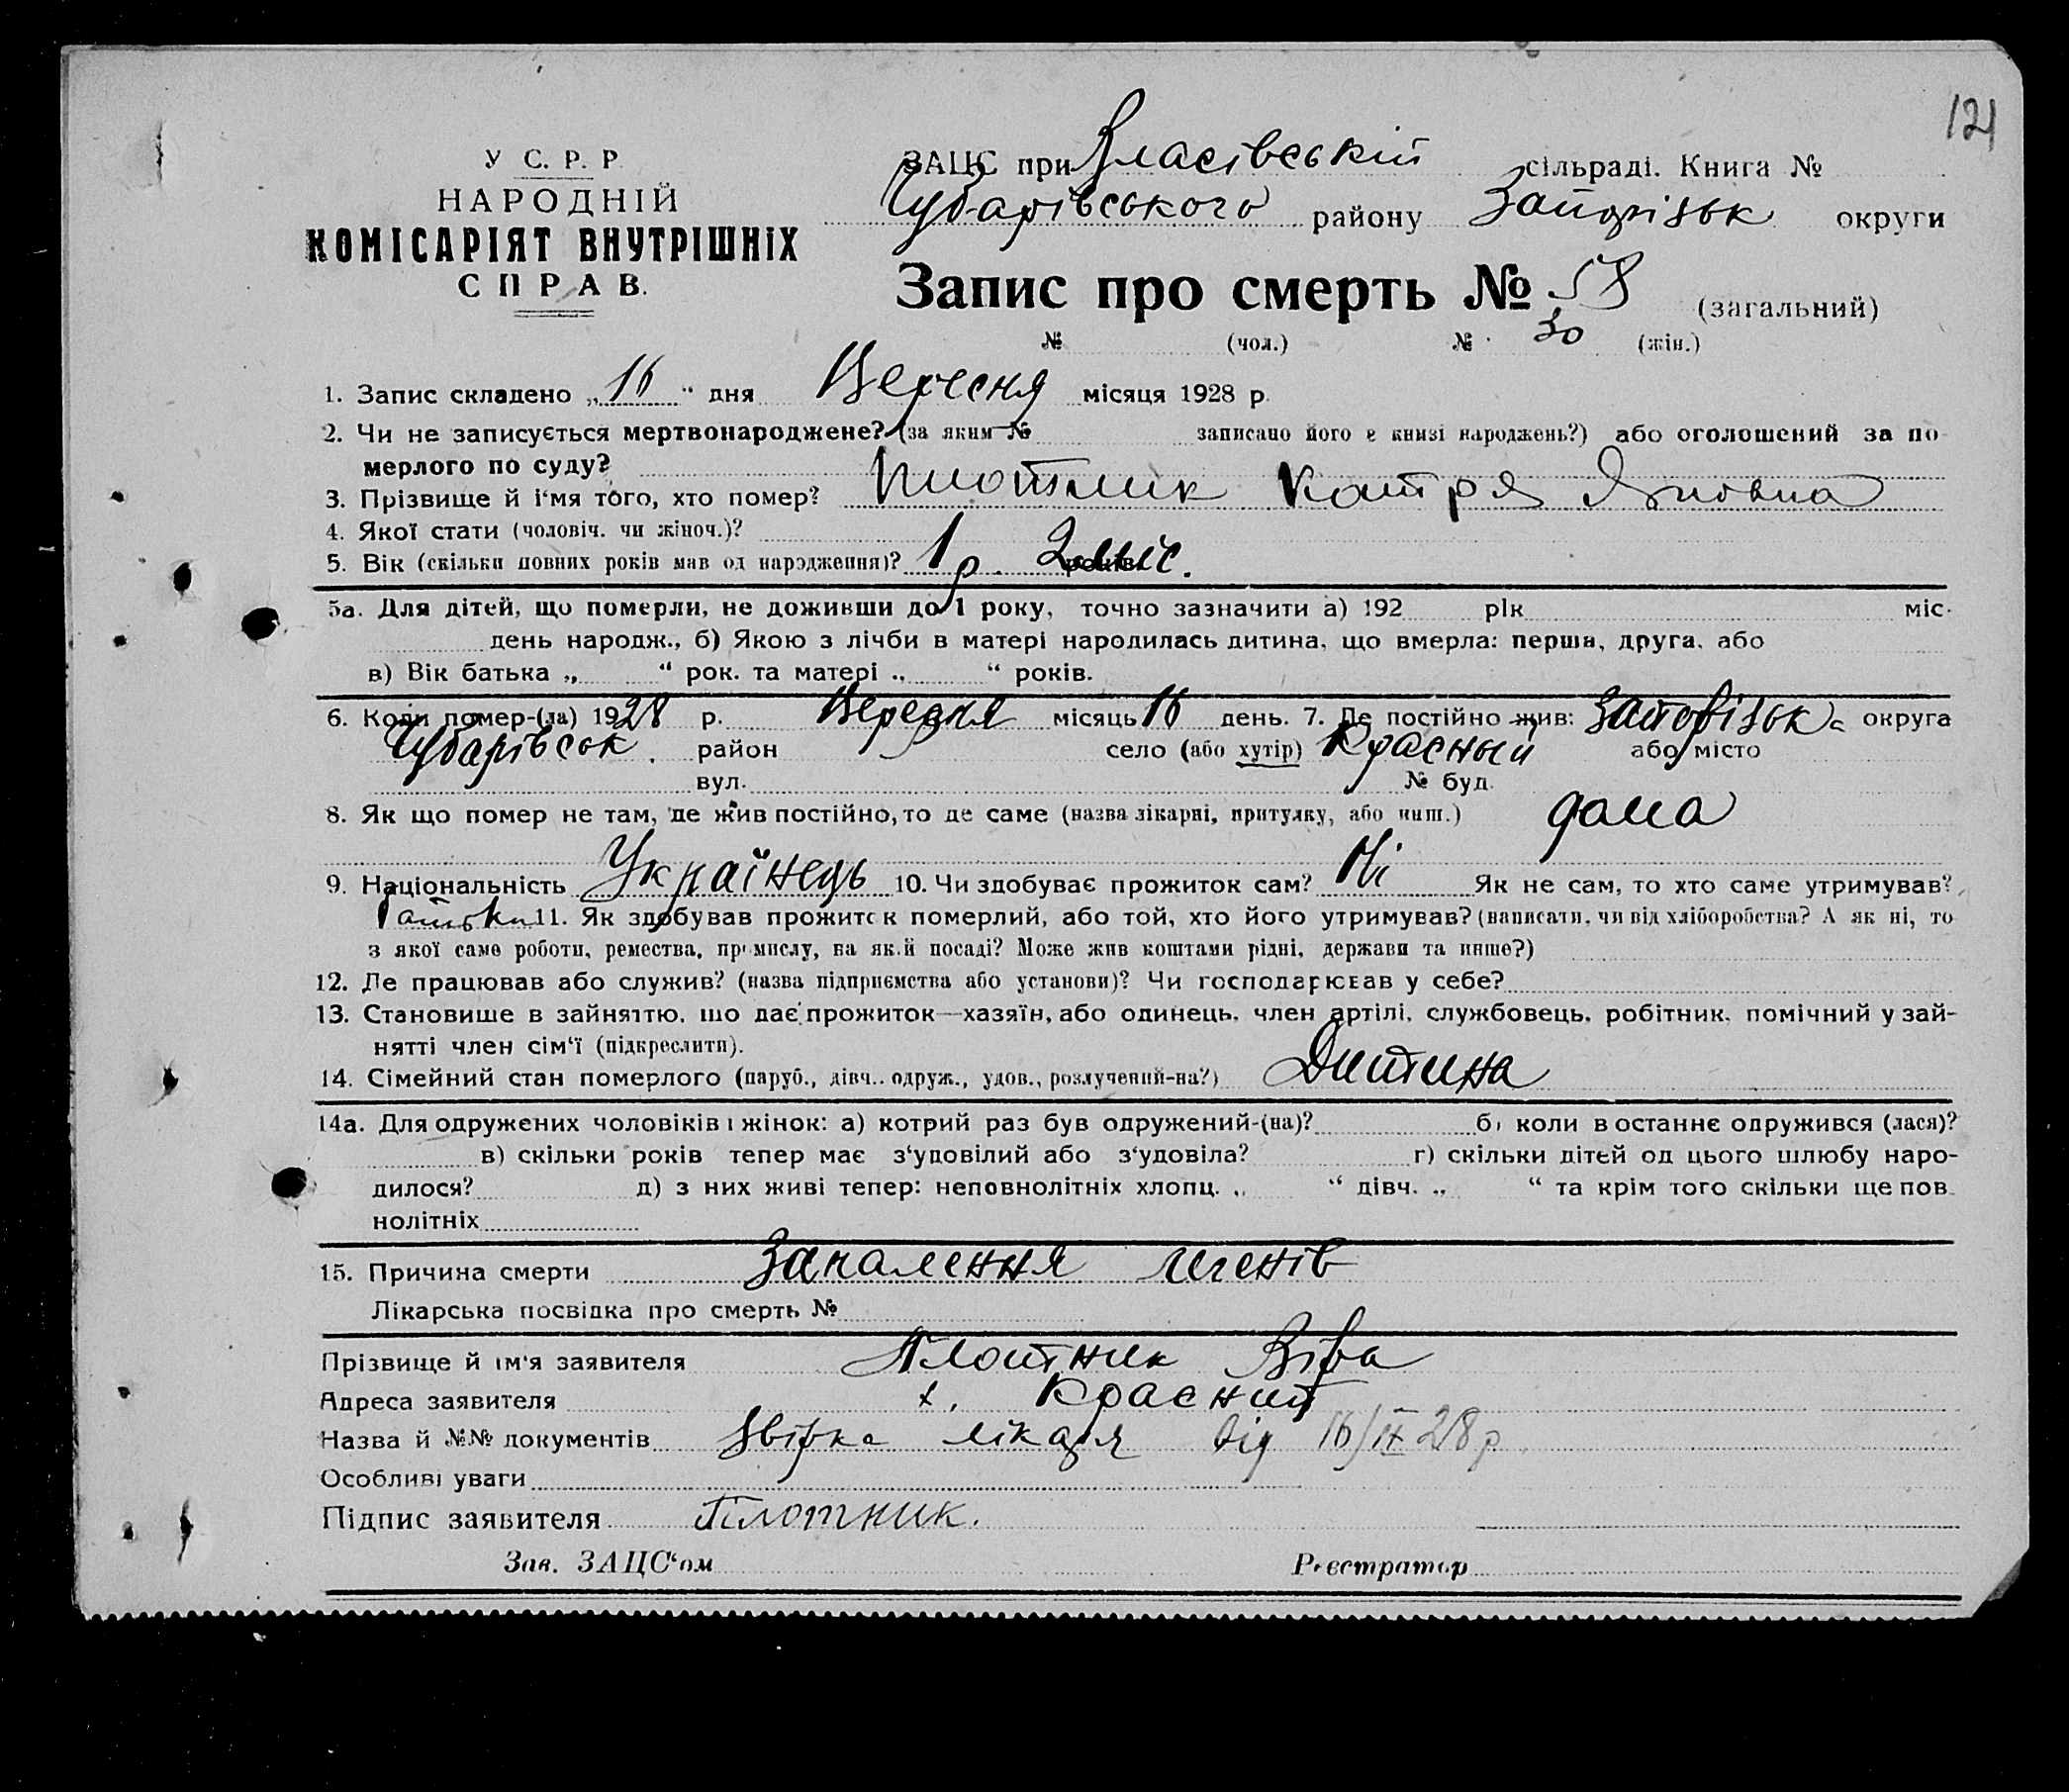 121
У С. Р. Р.
НАРОДНІЙ
КОМІСАРІЯТ ВНУТРІШНІХ
СПРАВ.
ЗАЦС при Власівській сільраді. Книга №
Чубарівського району Запорізьк округи
Запис про смерть № 58 (загальний)
№ (чол.) № 30 (жін.)
1. Запис складено „16" дня Вересня місяця 1928 р.
2. Чи не записується мертвонароджене? (за яким № записано його в книзі народжень?) або оголошений за по-
мерлого по суду?
3. Прізвище й і'мя того, хто помер? Плотник Катря Яковна
4. Якої стати (чоловіч. чи жіноч.)?
5. Вік (скільки повних років мав од народження)? 1 р. 2 міс.
5а. Для дітей, що померли, не доживши до 1 року, точно зазначити а) 192 рік міс.
день народж., б) Якою з лічби в матері народилась дитина, що вмерла: перша, друга, або
в) Вік батька „ " рок. та матері „ " років.
6. Коли помер-(ла) 1928 р. Вересня місяць 16 день. 7. Де постійно жив: Запорізьк округа
Чубарівськ. район село (або хутір) Красный або місто
вул. № буд.
8. Як що помер не там, де жив постійно, то де саме (назва лікарні, притулку, або инш.) дома
9. Національність Українець 10. Чи здобуває прожиток сам? Ні Як не сам, то хто саме утримував?
Батьки 11. Як здобував прожиток померлий, або той, хто його утримував? (написати, чи від хліборобства? А як ні, то
з якої саме роботи, ремества, промислу, на якій посаді? Може жив коштами рідні, держави та инше?)
12. Де працював або служив? (назва підприємства або установи)? Чи господарював у себе?
13. Становище в зайняттю, що дає прожиток—хазяїн, або одинець, член артілі, службовець, робітник, помічний у зай-
нятті член сім'ї (підкреслити).
14. Сімейний стан померлого (паруб., дівч., одруж., удов., розлучений-на?) Дитина
14а. Для одружених чоловіків і жінок: а) котрий раз був одружений-(на)? б) коли в останнє одружився (лася)?
в) скільки років тепер має з'удовілий або з'удовіла? г) скільки дітей од цього шлюбу наро-
дилося? д) з них живі тепер: неповнолітніх хлопц. „ " дівч. „ " та крім того скільки ще пов-
нолітніх
15. Причина смерти Запалення легенів
Лікарська посвідка про смерть №
Прізвище й ім'я заявителя Плотник Віра
Адреса заявителя х. Красний
Назва й №№ документів лікаря від 16/IX 28 р.
Особливі уваги
Підпис заявителя Плотник.
Зав. ЗАЦС'ом Реєстратор